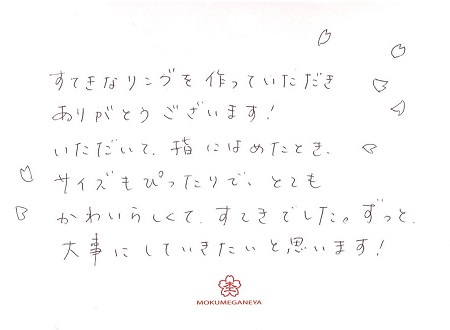 すてきなリングを作っていただき
ありがとうございます!
いただいて、指にはめたとき、
サイズもぴったりで、とても
かわいらしくて、すてきでした。ずっと、
大事にしていきたいと思います!
MOKUMEGANEYA